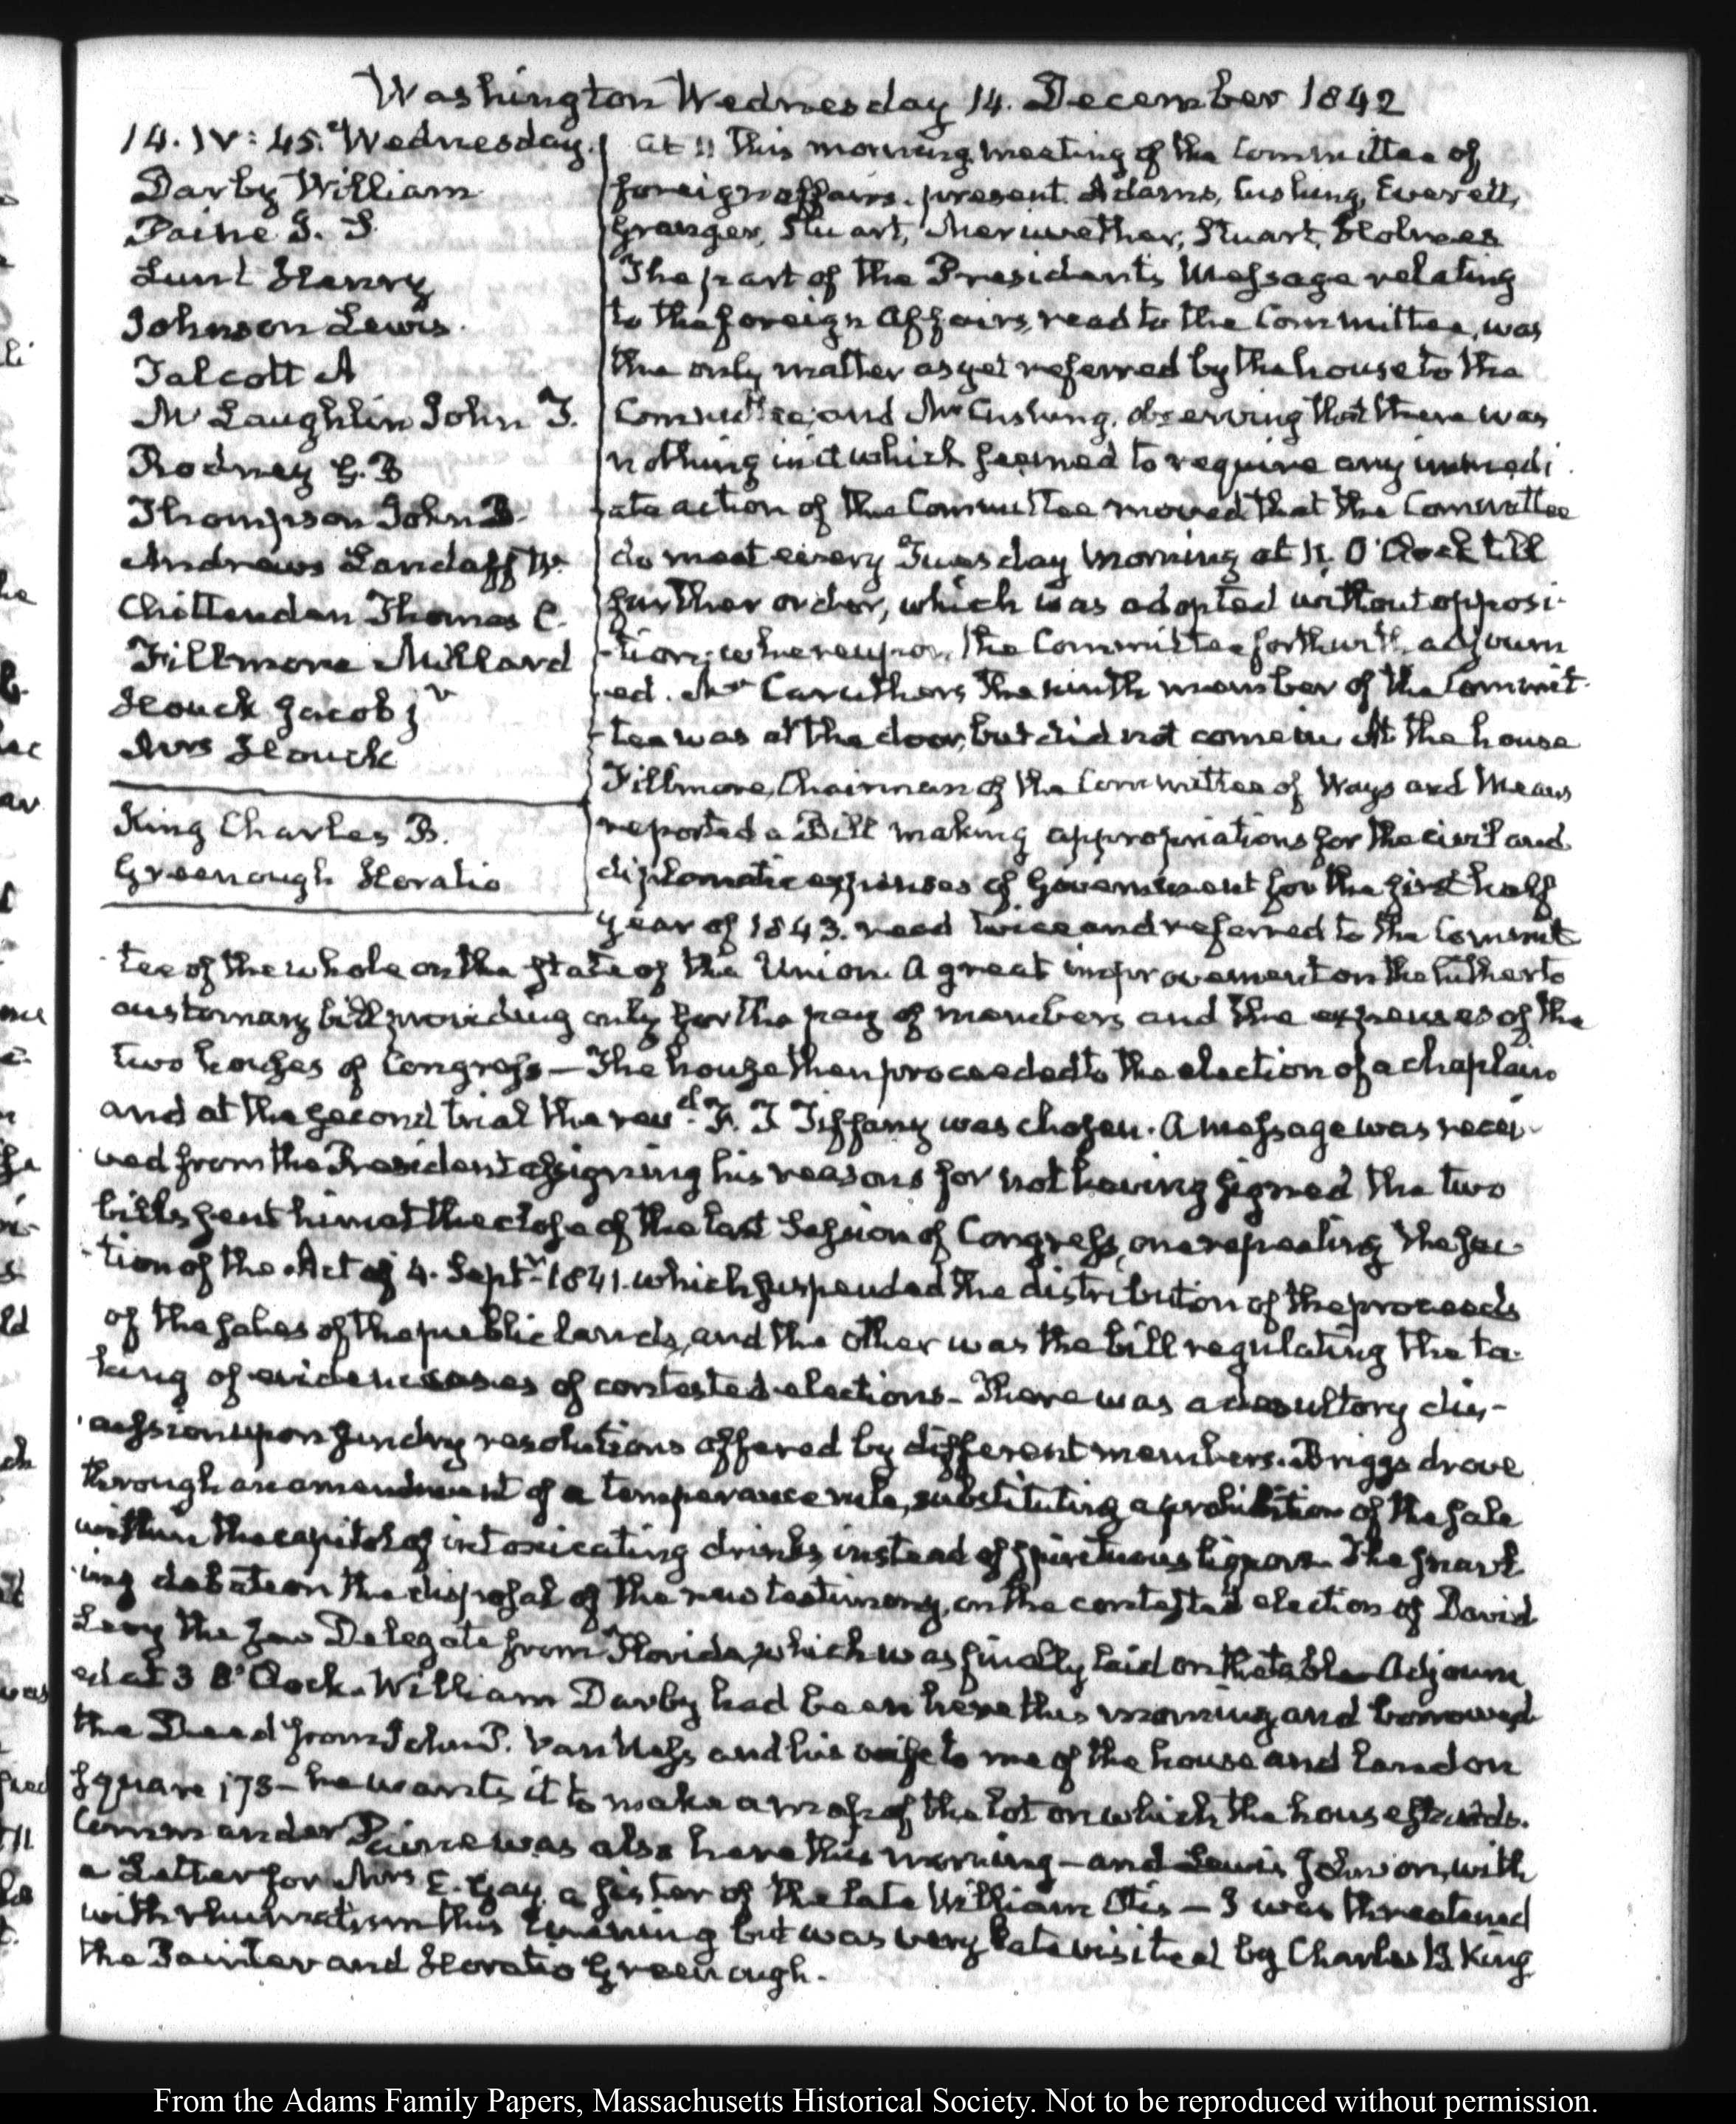 Washington Wednesday 14. December 1842
14. IV: 45. Wednesday.
Darby William
Paine J. S.
Lunt Henry
Johnson Lewis.
Talcott A
McLaughlin John T.
Rodney G. B
Thompson John B.
Andrews Landaff W.
Chittenden Thomas C.
Fillmore Millard
Houck Jacob jr
Mrs Houck
King Charles B.
Greenough Horatio
At 11 this morning meeting of the Committee of
foreign affairs. present Adams, Cushing, Everett,
Granger, Stuart, Meriwether, Stuart, Holmes
The part of the Presidents Message relating
to the foreign Affairs, read to the Committee, was
the only matter as yet referred by the house to the
Committee, and Mr Cushing, observing that there was
nothing in it which seemed to require any immedi
ate action of the Committee moved that the Committee
do meet every Tuesday morning at 11. O'Clock till
further order, which was adopted without opposi-
-tion; whereupon, the Committee forthwith adjourn
ed. Mr Caruthers, the ninth member of the Commit-
-tee was at the door, but did not come in. At the house
Fillmore, Chairman of the Committee of Ways and Means
reported a Bill making appropriations for the civil and
diplomatic expenses of Government for the first half
year of 1843. read twice and referred to the Commit
tee of the whole on the state of the Union. A great improvement on the hitherto
customary bill providing only for the pay of members and the expenses of the
two houses of Congress — The house then proceeded to the election of a chaplain
and at the second trial the revd. F. T Tiffany was chosen. A message was recei-
ved from the President assigning his reasons for not having signed the two
bills sent him at the close of the last Session of Congress, one repealing the sec-
-tion of the Act of 4. Septr. 1841. which suspended the distribution of the proceeds
of the sales of the public lands, and the other was the bill regulating the ta-
king of evidence cases of contested elections - There was a desultory dis-
cussion upon sundry resolutions offered by different members. Briggs drove
through an amendment of a temperance rule, substituting a prohibition of the sale
within the capitol of intoxicating drinks, instead of spirituous liquors. The snarl
ing debate on the disposal of the new testimony, on the contested election of David
Levy the Jew Delegate from Florida, which was finally laid on the table. Adjourn
ed at 3 O'Clock. William Darby had been here this morning and borrowed
the Deed from John P. Van Ness and his wife to me of the house and land on
Square 173 - he wants it to make a map of the lot on which the house stands.
Commander Paine was also here this morning - and Lewis Johnson, with
a Letter for Mrs E. Gay, a sister of the late William Otis - I was threatened
with rheumatism this Evening but was very late visited by Charles B. King
the Painter and Horatio Greenough.
From the Adams Family Papers, Massachusetts Historical Society. Not to be reproduced without permission.